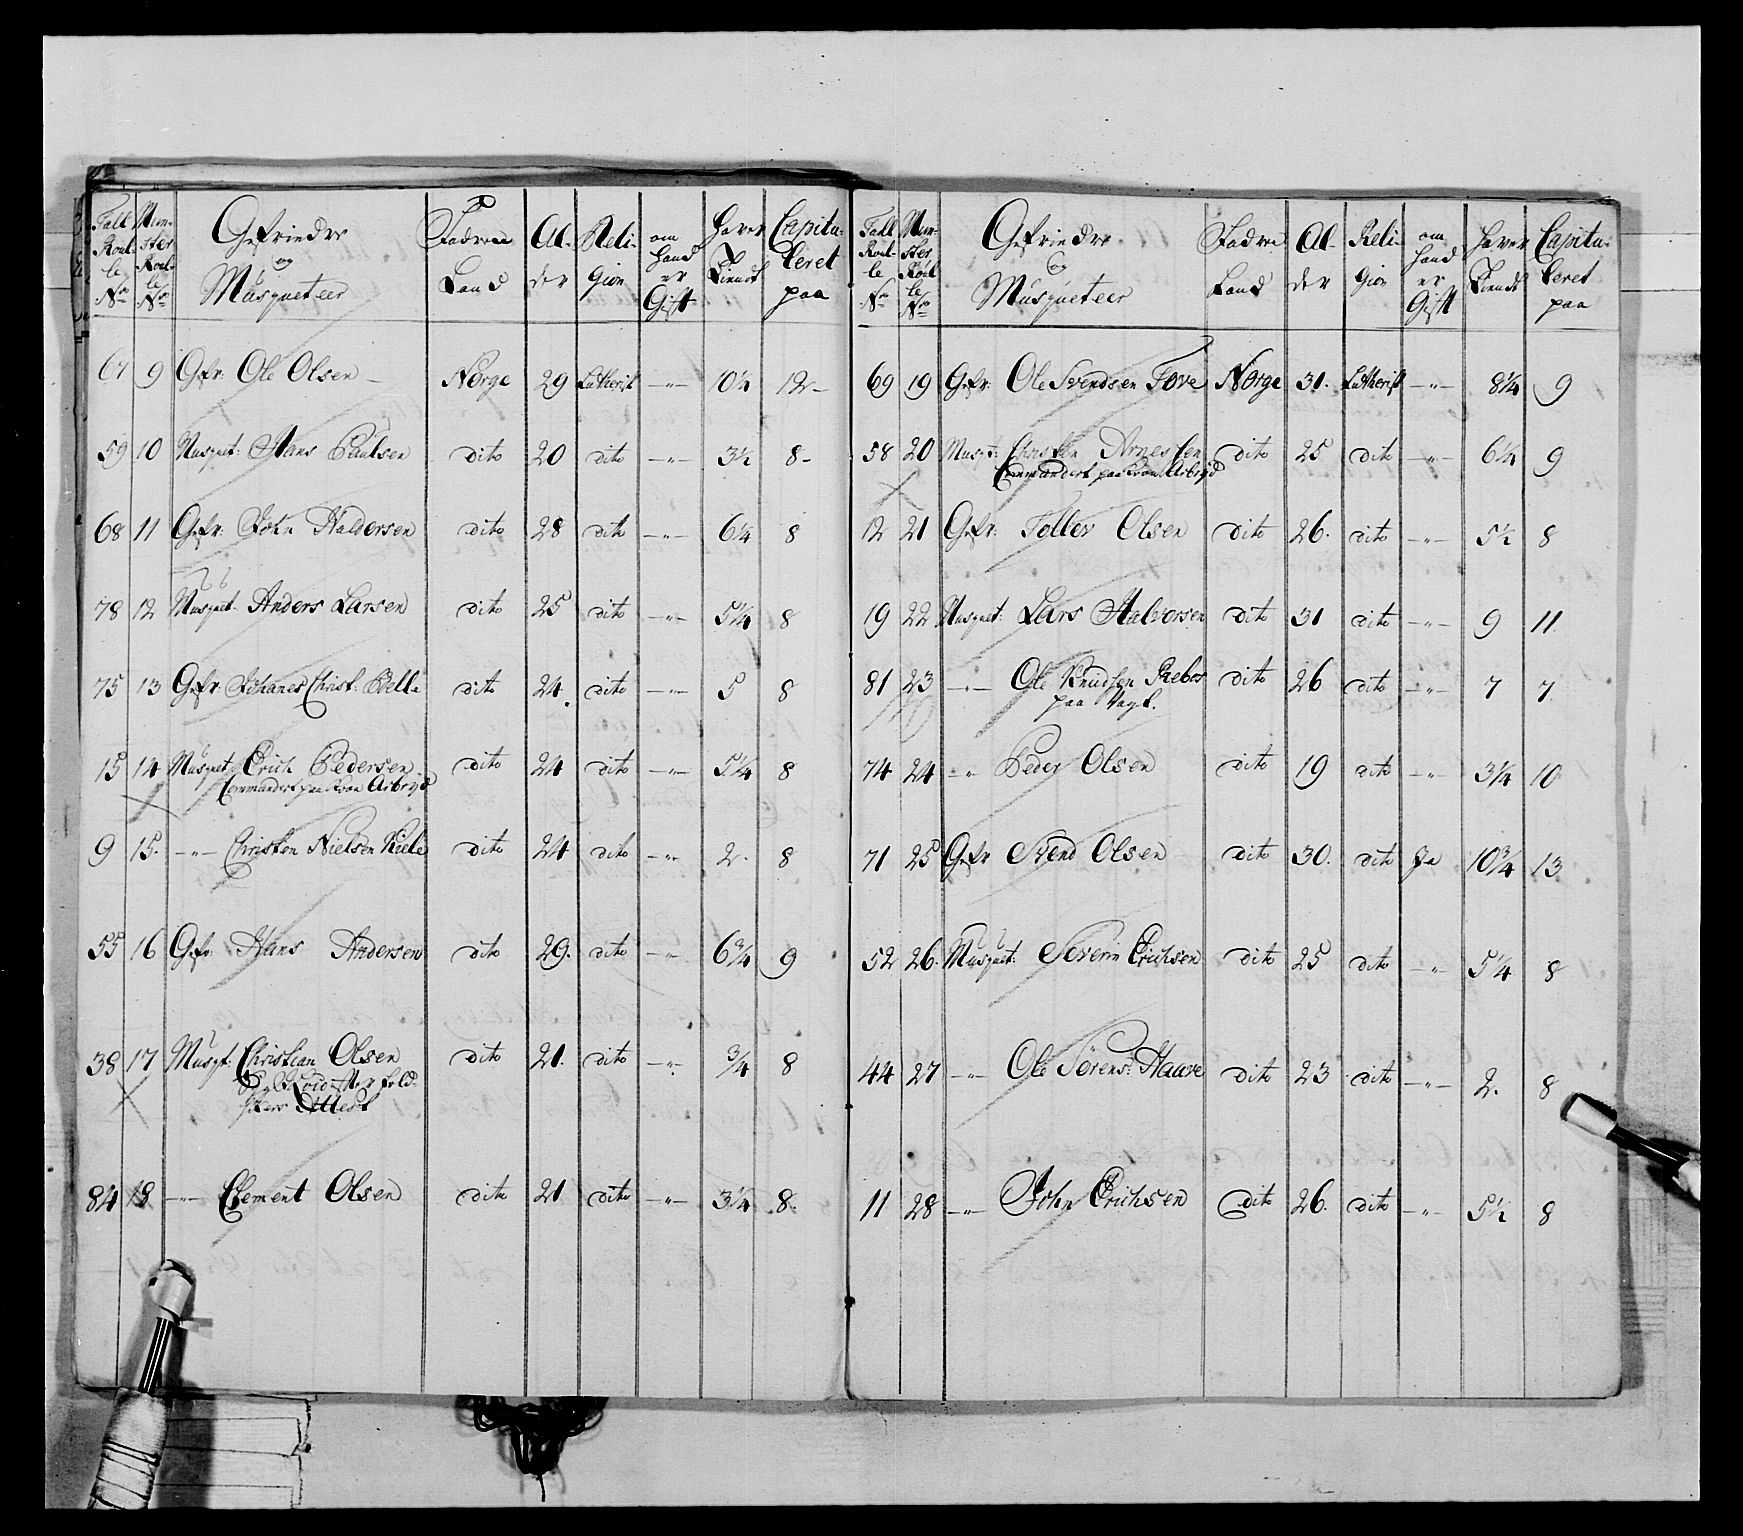 Tall Roul- le No | Mün- ster Roul- le No | Gefriedre og Müsqueteer | Fædrene Land | Al- der | Reli- gion | om hand er Gift | Haver Tiendt | Capitu- leret paa
67 9 Gefr: Ole Olsen Norge 29 Lutherisk —"— 10¼ 12
59 10 Musquet: Hans Paulsen dito 20 dito —"— 3½ 8
68 11 Gefr: John Haldorsen dito 28 dito —"— 6¼ 8
78 12 Musquet: Anders Larsen dito 25 dito —"— 5¼ 8
75 13 Gefr: Johanes Christ: Belli dito 24. dito —"— 5 8
15 14 Musquet Erich Pedersen dito 24 dito —"— 5¼ 8
Commandert paa Arbejd
9 15. —"— Christen Nielsen Kiele dito 24 dito —"— 2. 8
55 16 Gefr: Hans Andersen dito 29. dito —"— 6¾ 9
38 17 Musqt: Christian Olsen dito 21. dito —"— ¾ 8
Feld-
skers Attest
84 18 —"— Clement Olsen dito 21 dito —"— 3¼ 8.
Tall Roul- le No | Mün- ster Roul le No | Gefriedre og Müsqueteer | Fædrene Land | Al- der | Reli- gion | om hand er Gift | Haver Tiendt | Capitu- leret paa
69 19 Gefr: Ole Svendsen Tove Norge 31. Lutherisk —"— 8¼ 9
58 20 Musqt: Christen Arnessen dito 25 dito —"— 6¼ 9
Commandert paa Arbejd
12 21 Gefr: Tollev Olsen dito 26. dito —"— 5½ 8
19 22 Musquet: Lars Halvorsen dito 31 dito —"— 9 11.
81 23 —"— Ole Knudsen dito 26 dito —"— 7 7.
paa Vagt.
74 24 —"— Peder Olsen dito 19 dito —"— 3¼ 10
71 25 Gefr Svend Olsen dito 30. dito Ja 10¾ 13
52 26. Musquet: Severin Erichsen dito 25 dito —"— 5¼ 8
44 27 —"— Ole Sörens: Haave dito 23 dito —"— 2. 8
11 28 —"— John Erichsen dito 26. dito —"— 5½ 8